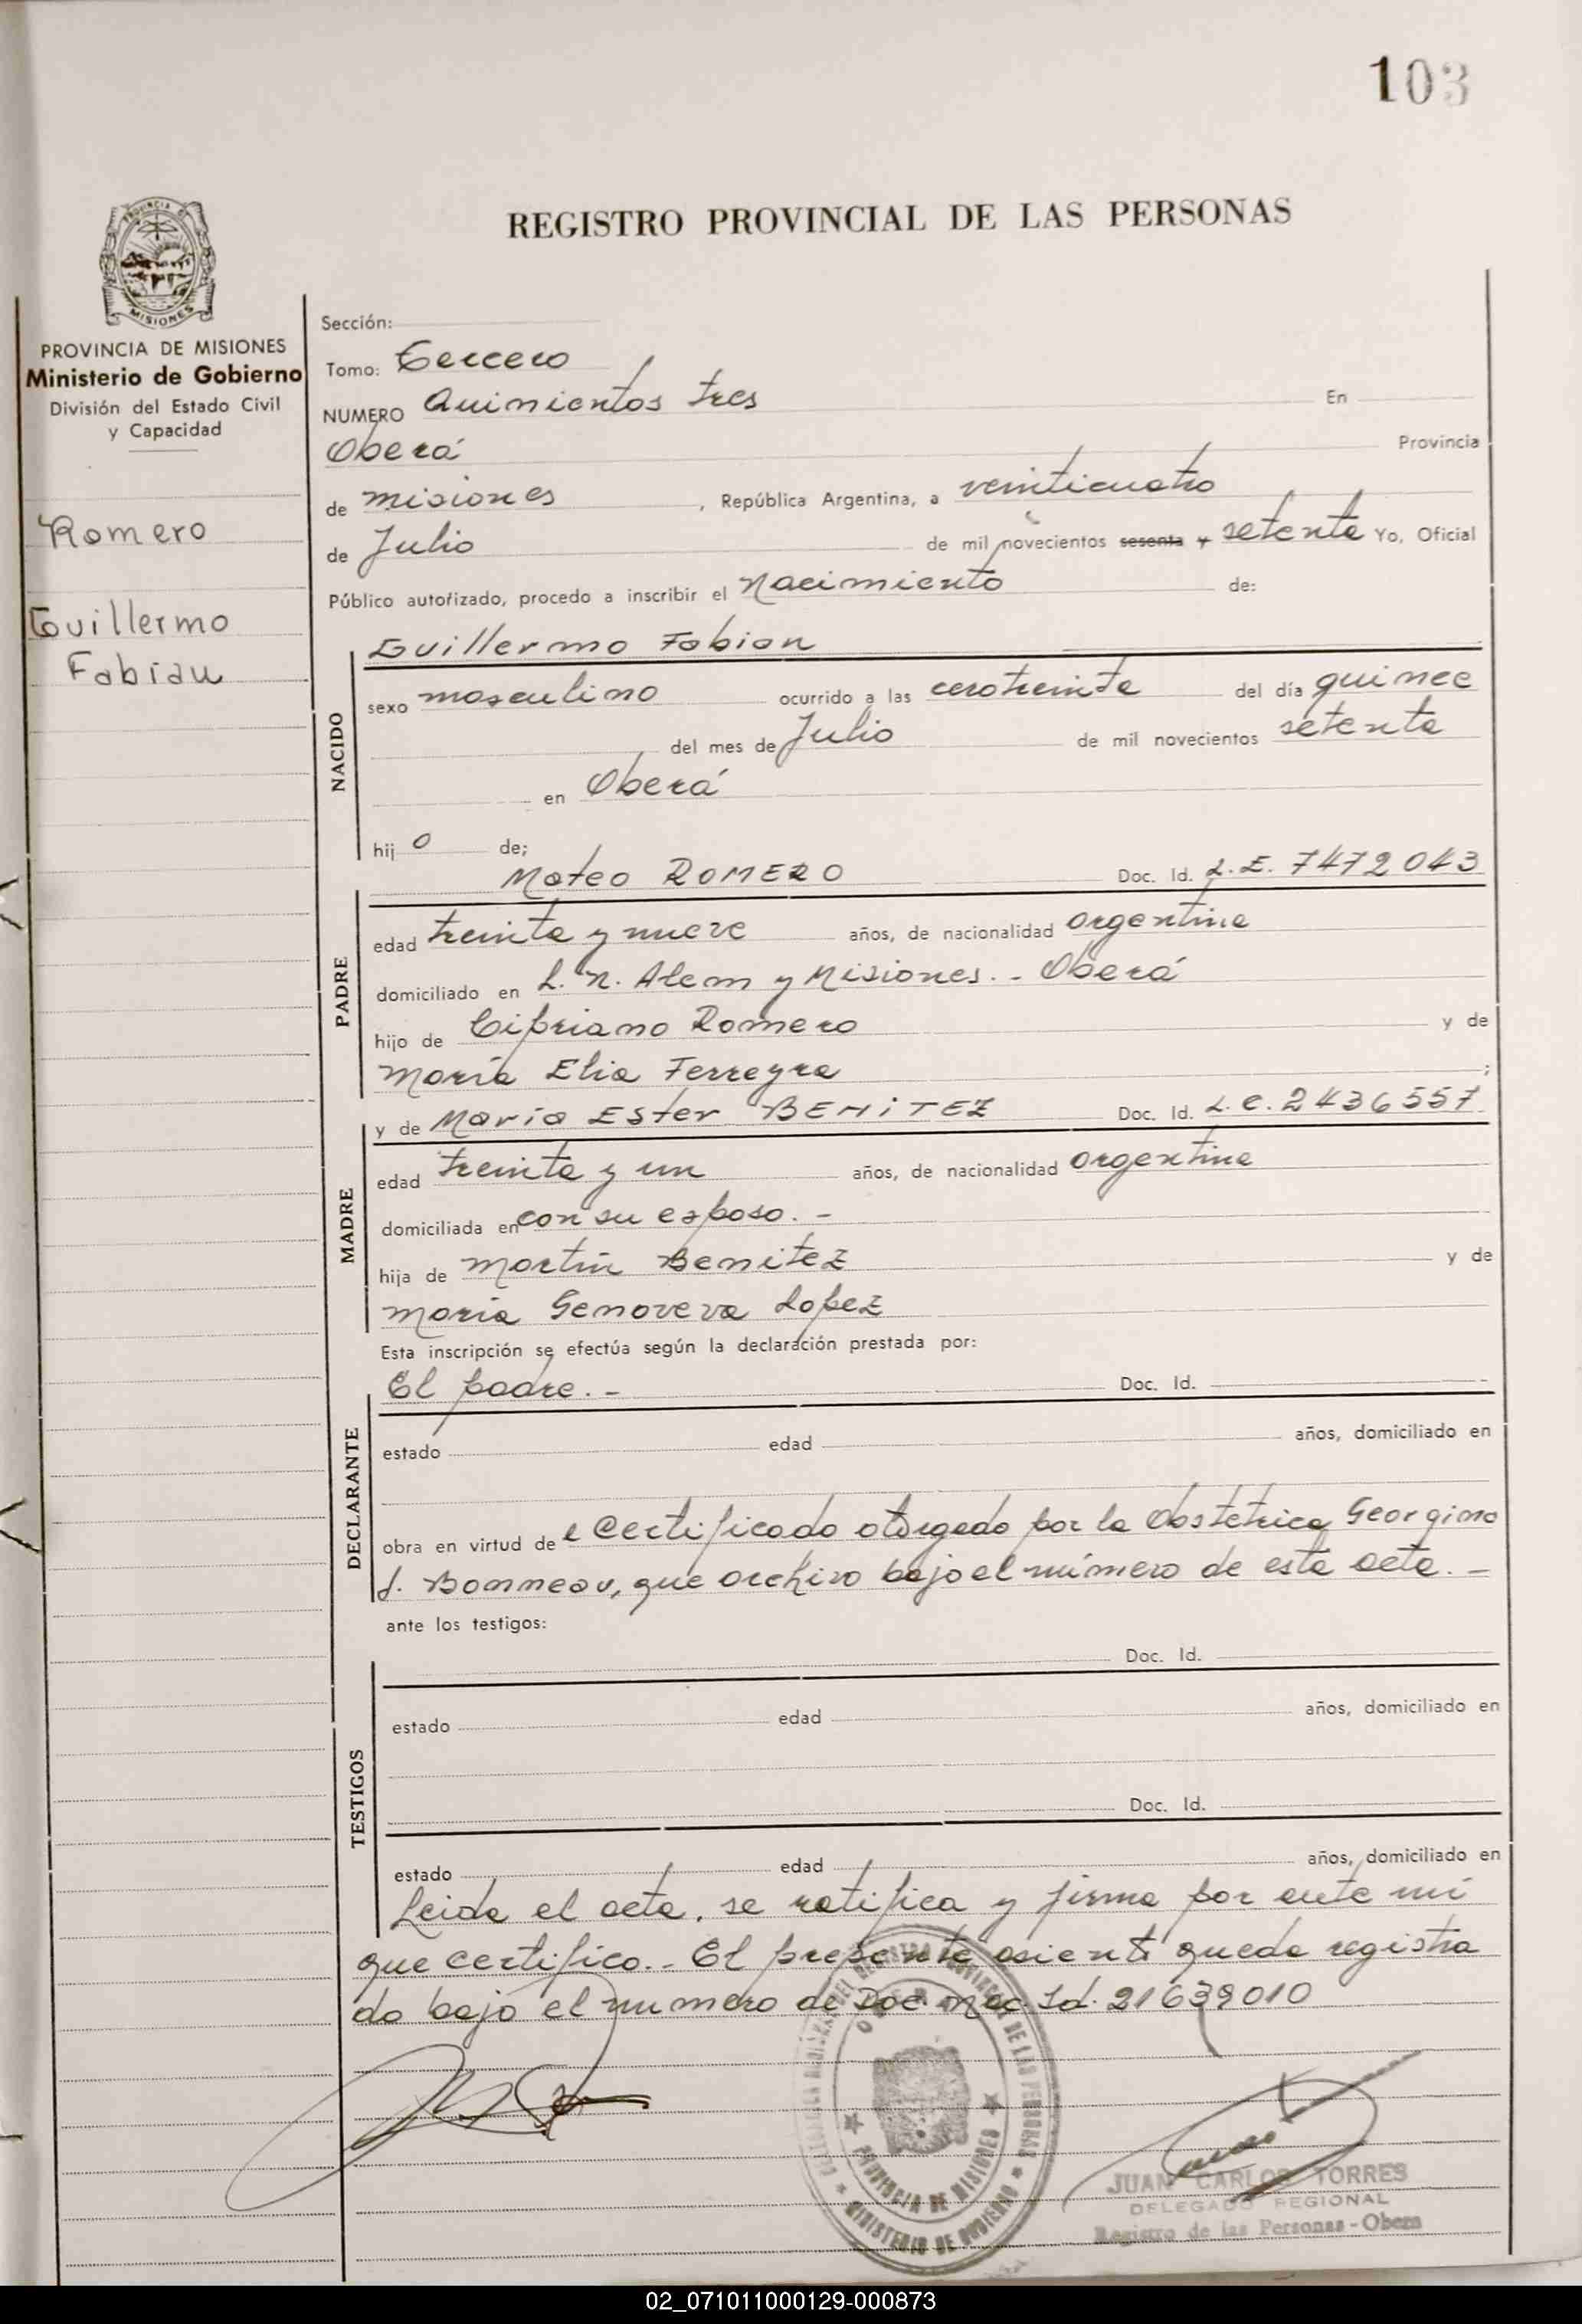 103
REGISTRO PROVINCIAL DE LAS PERSONAS
PROVINCIA DE MISIONES
Ministerio de Gobierno
División del Estado Civil
y Capacidad
Romero
Guillermo
Fabian
Sección:
Tomo: Tercero
NUMERO Quinientos tres En
Oberá Provincia
de misiones , República Argentina, a veinticuatro
de Julio de mil novecientos sesenta y setenta Yo, Oficial
Público autorizado, procedo a inscribir el Nacimiento de:
NACIDO
Guillermo Fabian
sexo masculino ocurrido a las cero treinta del día quince
del mes de Julio de mil novecientos setenta
en Oberá
hijo de;
PADRE
Mateo ROMERO Doc. Id. L.E. 7472043
edad treinta y nueve años, de nacionalidad argentina
domiciliado en L. N. Alem y Misiones. - Oberá
hijo de Cipriano Romero y de
María Elia Ferreyra ;
MADRE
y de María Ester BENITEZ Doc. Id. L.C. 2436557
edad treinta y un años, de nacionalidad argentina
domiciliada en con su esposo. -
hija de Martín Benitez y de
María Genoveva Lopez
Esta inscripción se efectúa según la declaración prestada por:
DECLARANTE
El padre. - Doc. Id.
estado edad años, domiciliado en
obra en virtud de l Certificado otorgado por la Obstetrica Georgina
J. Bonneau, que archivo bajo el número de esta acta. -
ante los testigos:
TESTIGOS
Doc. Id.
estado edad años, domiciliado en
Doc. Id.
estado edad años, domiciliado en
Leida el acta, se ratifica y firma por ante mí
que certifico.- El presente asiento queda registra
do bajo el numero de Doc. Nac. Id. 21639010
PROVINCIA DE MISIONES
MINISTERIO DE GOBIERNO
JUAN CARLOS TORRES
DELEGADO REGIONAL
Registro de las Personas - Obera
02_071011000129-000873